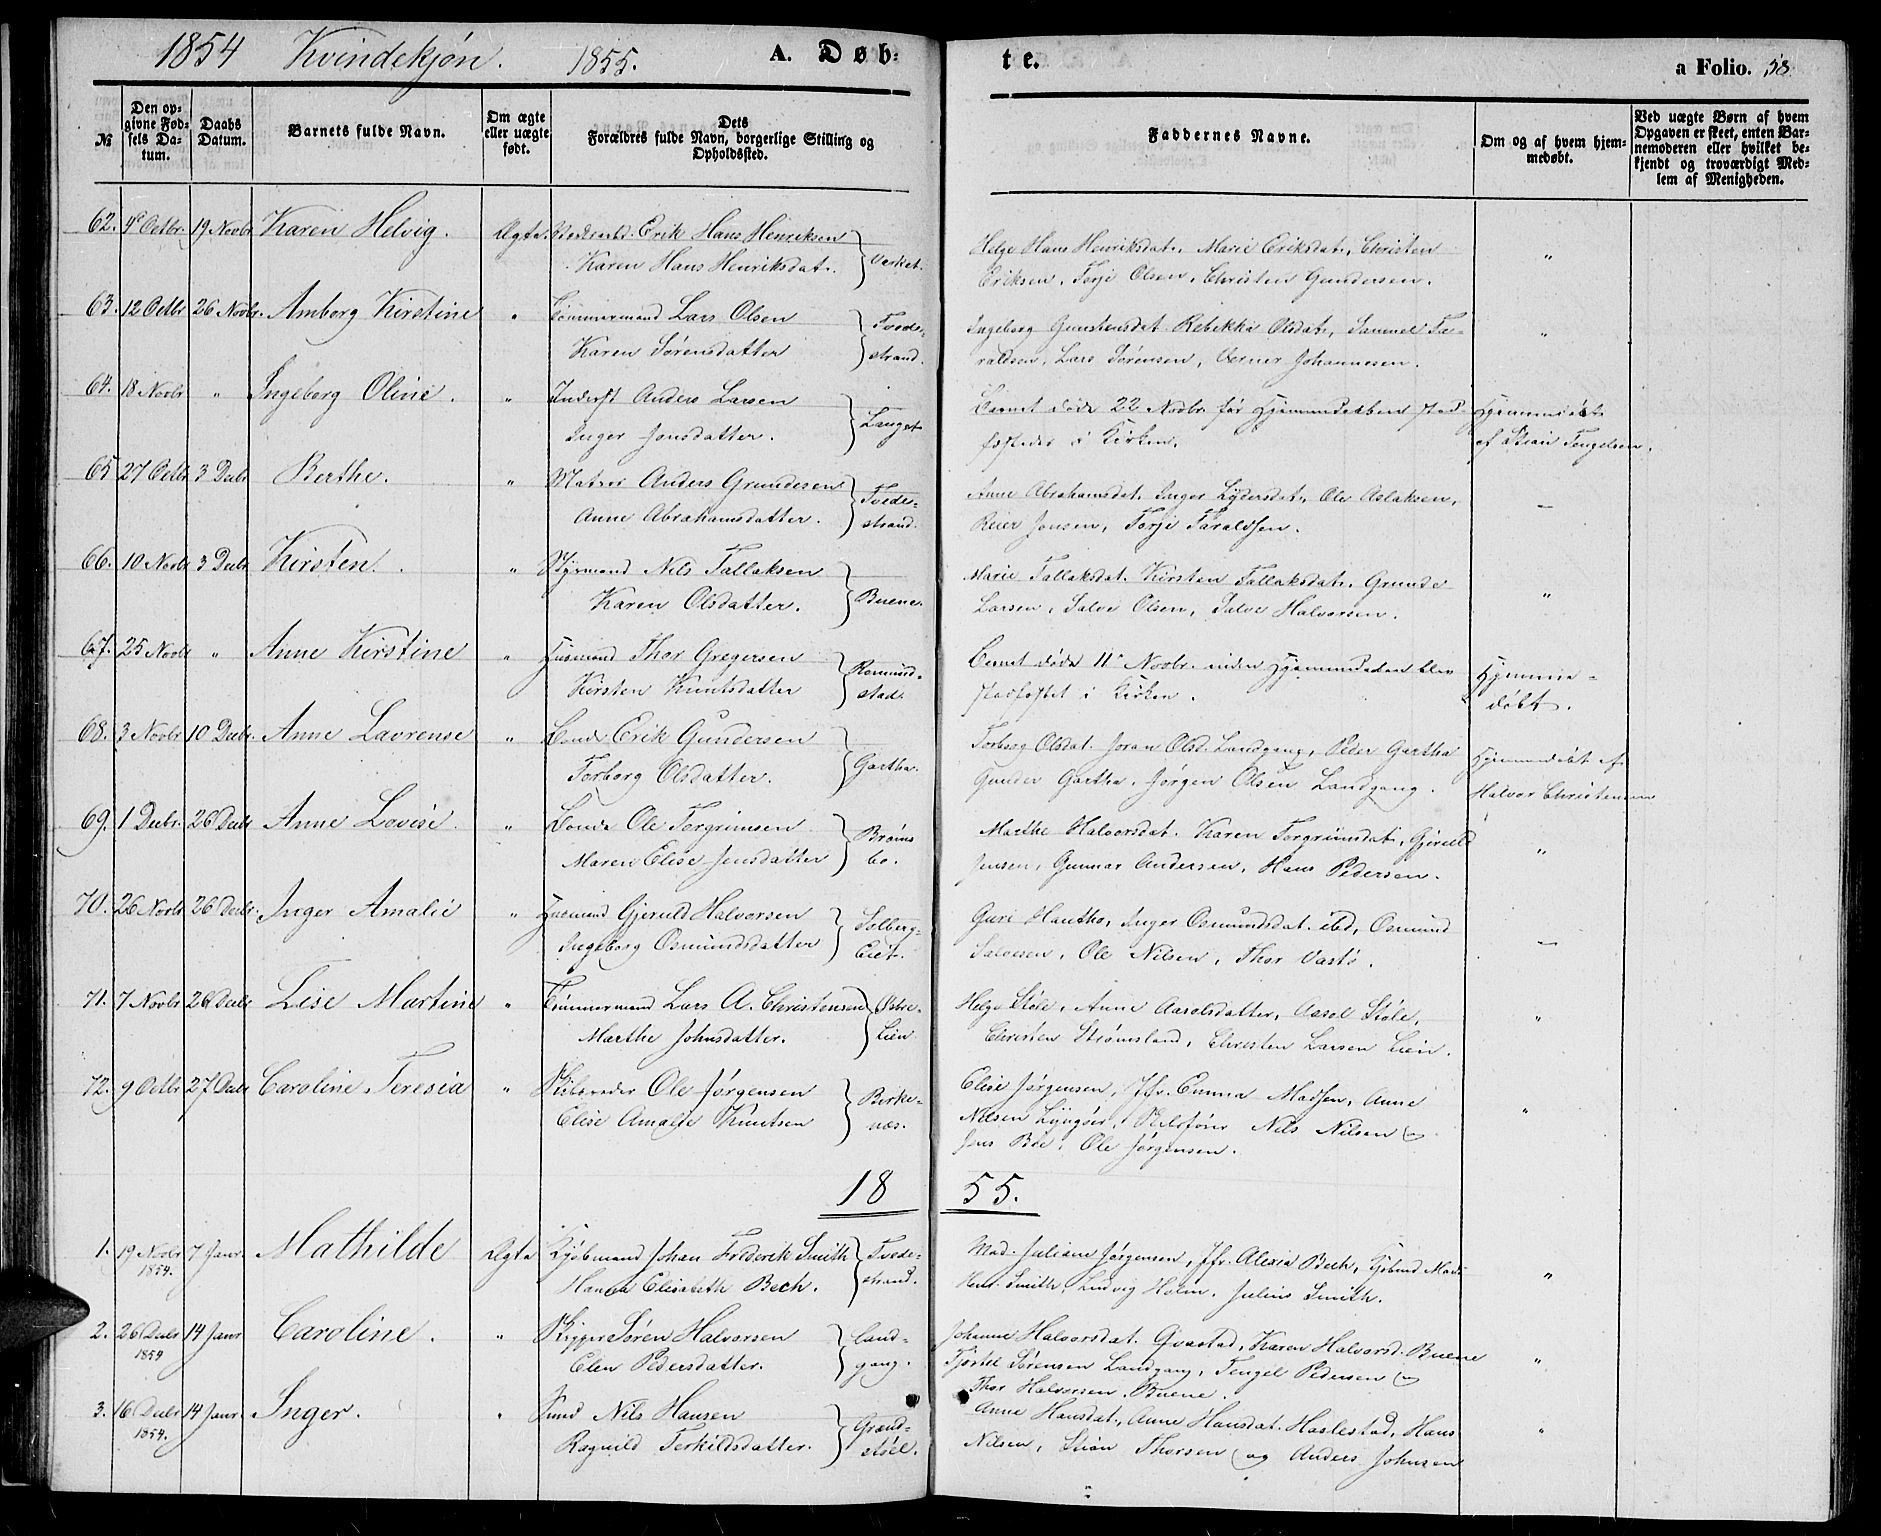 1854 Kvindekjøn. 1855. A. Døb- te. a Folio. 58.
№
Den op-
givne Fød-
sels Da-
tum.
Daabs
Datum.
Barnets fulde Navn.
Om ægte
eller uægte
født.
Dets
Forældres fulde Navn, borgerlige Stilling og
Opholdssted.
Faddernes Navne.
Om og af hvem hjem-
medøbt.
Ved uægte Børn af hvem
Opgaven er skeet, enten Bar-
nemoderen eller hvilket be-
kjendt og troværdigt Med-
lem af Menigheden.
62. 4de Octbr. 19 Novbr. Karen Helvig. Ægte Erik Hans Henriksen
Karen Hans Henriksdat. } Værket.
Helge Hans Henriksdat., Marie Eriksdat., Christen
Eriksen, Terje Olsen, Christen Gundersen. "
63. 12 Octbr 26 Novbr. Amborg Kirstine " Tømmermand Lars Olsen
Karen Sørensdatter } Tvede-
strand.
Ingeborg Gunstensdat. Rebekka Olsdat., Samuel Ta-
raldsen, Lars Sørensen, Verner Johannesen. "
64. 18 Novbr " Ingeborg Oline. " Inderst Anders Larsen
Inger Jonsdatter. } Langet
Barnet døde 22 Novbr. før Hjemmedaaben stad-
fæstedes i Kirken.
Hjemmedøbt
af Stian Tengelsen.
65 27 Octbr. 3 Decbr Berthe. " Matros Anders Grundesen
Anne Abrahamsdatter. } Tvede-
strand.
Anne Abrahamsdat. Inger Lydersdat., Ole Aslaksen,
Reier Jensen, Terje Taraldsen. "
66. 10 Novbr 3 Decbr Kirsten. " Styrmand Nils Tallaksen
Karen Olsdatter. } Buene.
Marie Tallaksdat. Kirsten Tallaksdat. Grunde
Larsen, Salve Olsen, Salve Halvorsen. "
67. 25 Novbr " Anne Kirstine " Husmand Thor Gregersen
Kirsten Knutsdatter } Romund-
stad.
Barnet døde 11te Novbr. inden Hjemmedaaben blev
stadfæstet i Kirken.
Hjemme-
døbt.
68. 3 Novbr 10 Decbr. Anne Lavrense " Bonde Erik Gundersen
Torborg Olsdatter. } Gartha.
Torborg Olsdat. Joran Olsd. Landgang, Peder Gartha
Gunder Gartha, Jørgen Olsen Landgang.
Hjemmedøbt af
Halvor Christensen
69. 1 Decbr. 26 Decbr Anne Lovise. " Bonde Ole Torgrimsen
Maren Elise Jensdatter } Brøms
bo.
Marthe Halvorsdat. Karen Torgrimsdat., Gjeruld
Jensen, Gunnar Andersen, Hans Pedersen. "
70. 26 Novbr 26 Decbr. Inger Amalie " Husmand Gjeruld Halvorsen
Ingeborg Osmundsdatter } Solberg-
Eiet.
Guri Hantho, Inger Osmundsdat. ibd, Osmund
Salvesen, Ole Nilsen, Thor Vastø. "
71. 7 Novbr 26 Decbr Lise Martine " Tømmermand Lars A. Christensen
Marthe Johnsdatter. } Østre-
Lien
Helge Støle, Anne Aasolsdatter, Aasol Støle,
Christen Strømsland, Christen Larsen Lien. "
72. 9 Octbr 27 Decbr Caroline Teresia " Skibsreder Ole Jørgensen
Elise Amalde Knutsen } Birke-
næs.
Elise Jørgensen, Jfr. Emma Madsen, Anne
Nilsen Lyngør, Skibsfører Nils Nilsen og
Jens Bøe, Ole Jørgensen. "
18 55.
1. 19 Novbr
1854. 7 Janr. Mathilde Ægte Kjøbmand Johan Frederik Smith
Hanna Elisabeth Bech. } Tvede-
strand.
Mad. Juliane Jørgensen, Jfr. Alexia Bech, Kjøbmd Mads
Henr. Smith, Ludvig Holm, Julius Smith. "
2. 26 Decbr
1854 14 Janr Caroline. " Skipper Søren Halvorsen
Elen Pedersdatter. } Land-
gang.
Johanne Halvorsdat. Qvastad, Karen Halvorsd. Buene
Tjøstel Sørensen Landgang, Tengel Pedersen og
Thor Halvorsen Buene. "
3. 16 Decbr
1854. 14 Janr. Inger. " Nils Hansen
Ragnild Terkildsdatter. } Grænd-
støel.
Anne Hansdat., Anne Hansdat. Haslestad, Hans
Nilsen, Stian Thorsen og Anders Johnsen "